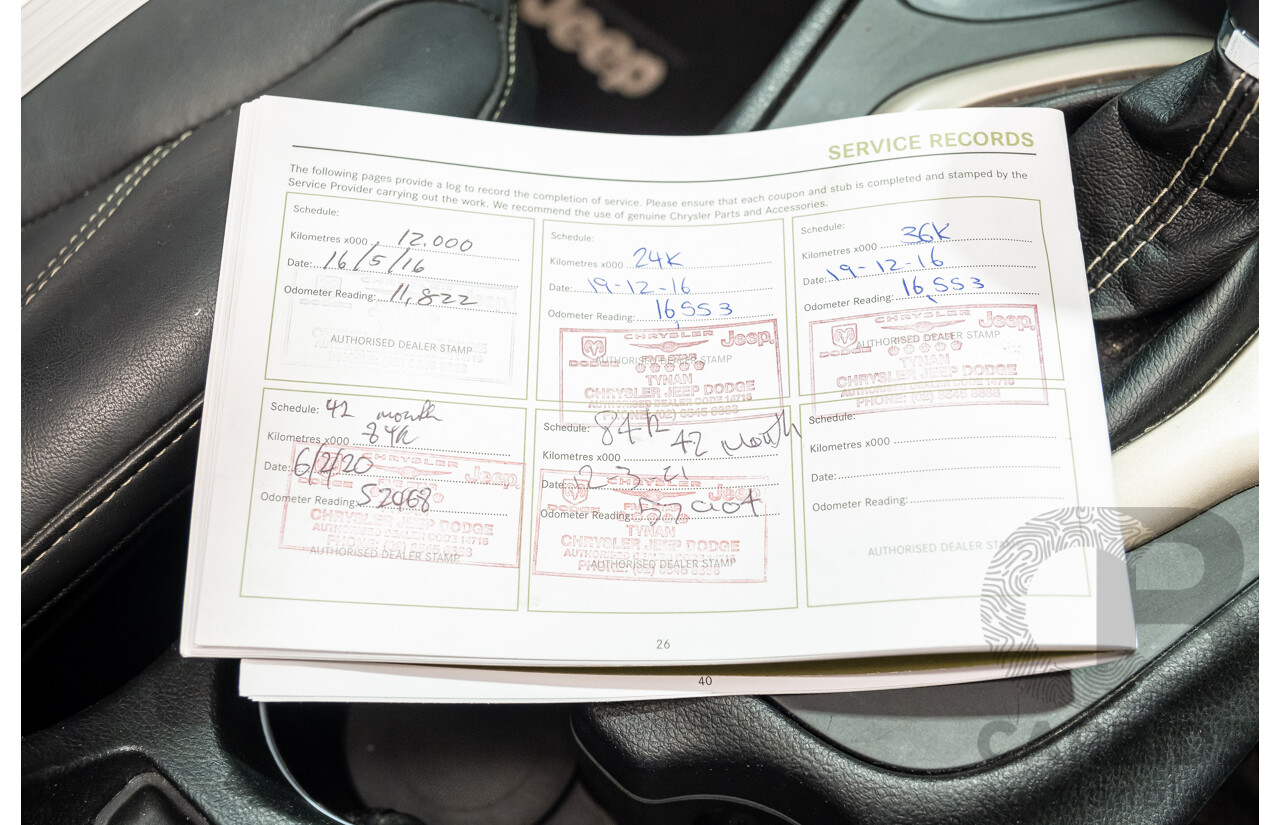 Jeep
SERVICE RECORDS
The following pages provide a log to record the completion of service. Please ensure that each coupon and stub is completed and stamped by the
Service Provider carrying out the work. We recommend the use of genuine Chrysler Parts and Accessories.
Schedule:
Kilometres x000 12.000
Date: 16/5/16
Odometer Reading: 11,822
AUTHORISED DEALER STAMP
Schedule:
Kilometres x000 24K
Date: 19-12-16
Odometer Reading: 16553
CHRYSLER Jeep
DODGE AUTHORISED DEALER STAMP
TYNAN
CHRYSLER JEEP DODGE
AUTHORISED DEALER CODE 14716
Schedule:
Kilometres x000 36K
Date: 19-12-16
Odometer Reading: 16553
CHRYSLER Jeep
DODGE AUTHORISED DEALER STAMP
TYNAN
CHRYSLER JEEP DODGE
AUTHORISED DEALER CODE 14716
Schedule: 42 month
Kilometres x000 84K
Date: 6/2/20
Odometer Reading: 52468
CHRYSLER Jeep
CHRYSLER JEEP DODGE
AUTHORISED DEALER CODE 14716
AUTHORISED DEALER STAMP
Schedule: 84K 42 Month
Kilometres x000
Date:
Odometer Reading:
CHRYSLER Jeep
DODGE
TYNAN
CHRYSLER JEEP DODGE
AUTHORISED DEALER CODE 14716
AUTHORISED DEALER STAMP
Schedule:
Kilometres x000
Date:
Odometer Reading:
AUTHORISED DEALER STAMP
26
40